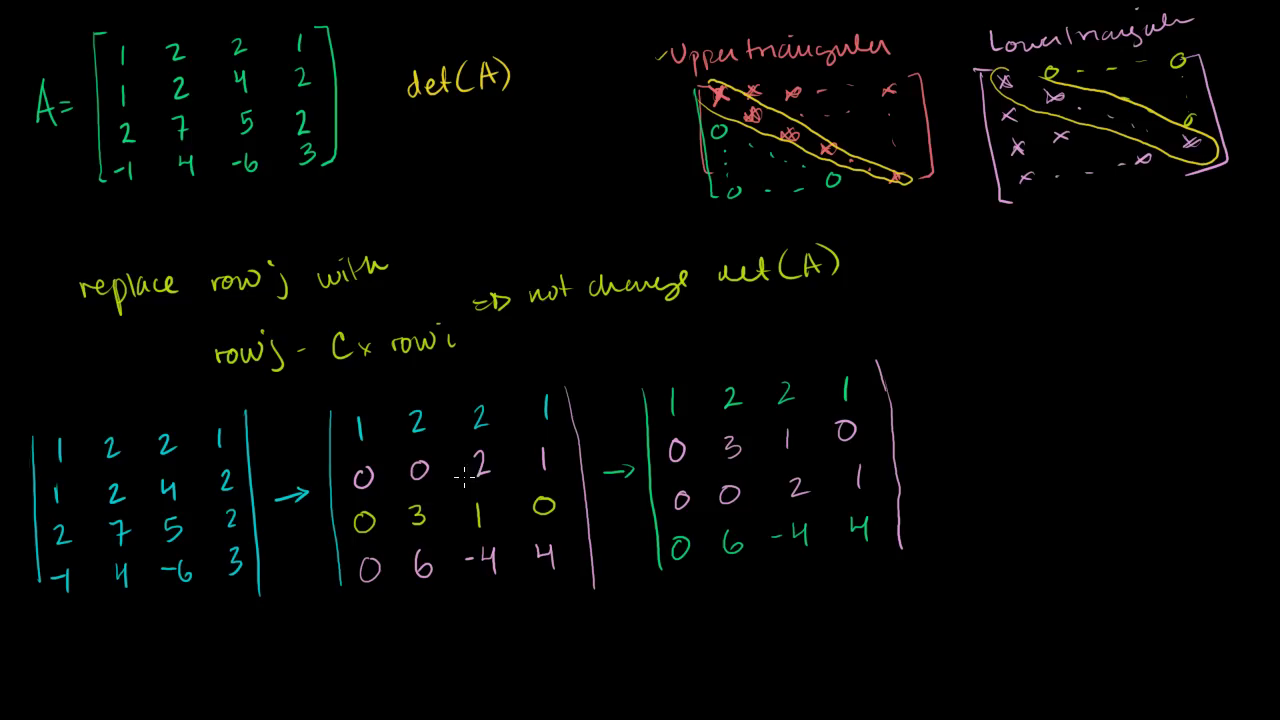 A = [ 1 2 2 1
1 2 4 2
2 7 5 2
-1 4 -6 3 ]
det(A)
Upper triangular
x x x - . . x
0 x x x . x
0 - - 0
Lower triangular
x 0 - - - 0
x x . . 0
x x x
x . - - x
replace row j with
row j - C x row i
=> not change det(A)
| 1 2 2 1 |
| 1 2 4 2 |
| 2 7 5 2 |
| -1 4 -6 3 |
→
| 1 2 2 1 |
| 0 0 2 1 |
| 0 3 1 0 |
| 0 6 -4 4 |
→
| 1 2 2 1 |
| 0 3 1 0 |
| 0 0 2 1 |
| 0 6 -4 4 |